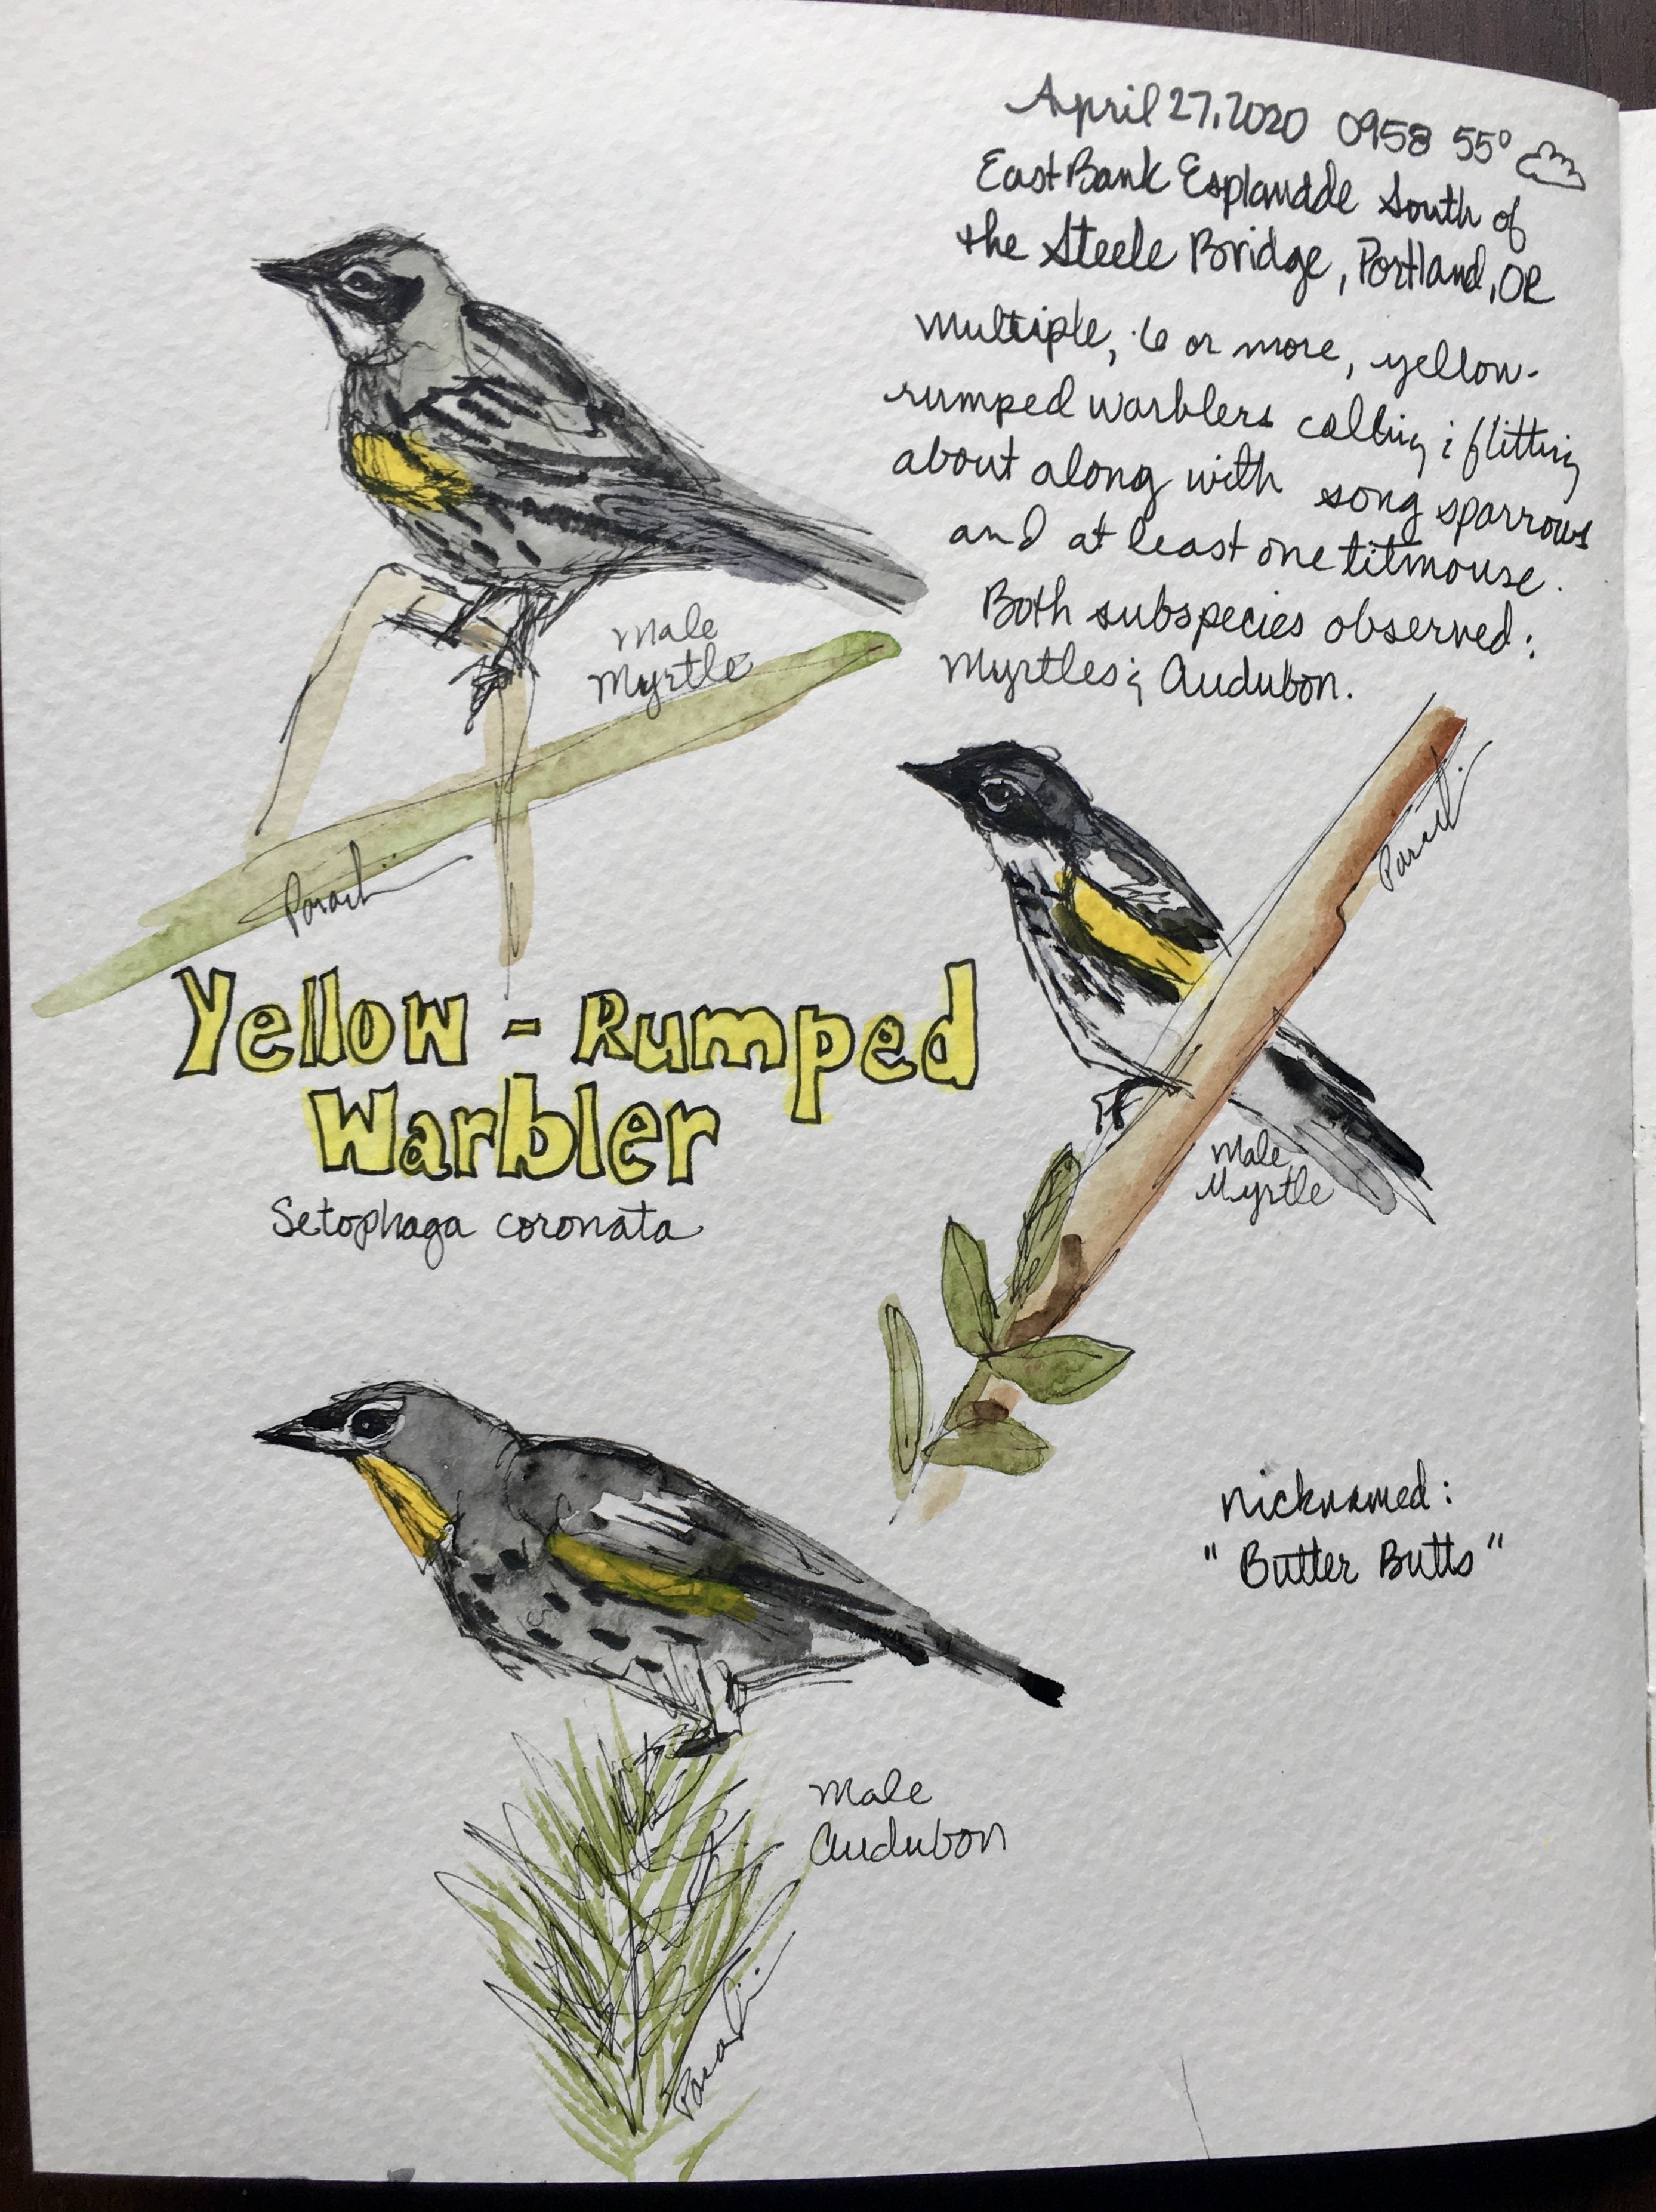 April 27, 2020 0958 55°
East Bank Esplanade South of
the Steele Bridge, Portland, OR
Multiple, 6 or more, yellow-
rumped warblers calling & flitting
about along with song sparrows
and at least one titmouse.
Both subspecies observed:
Myrtles & Audubon.
Male
Myrtle
Yellow - Rumped
Warbler
Setophaga coronata
Male
Myrtle
nicknamed:
"Butter Butts"
Male
Audubon